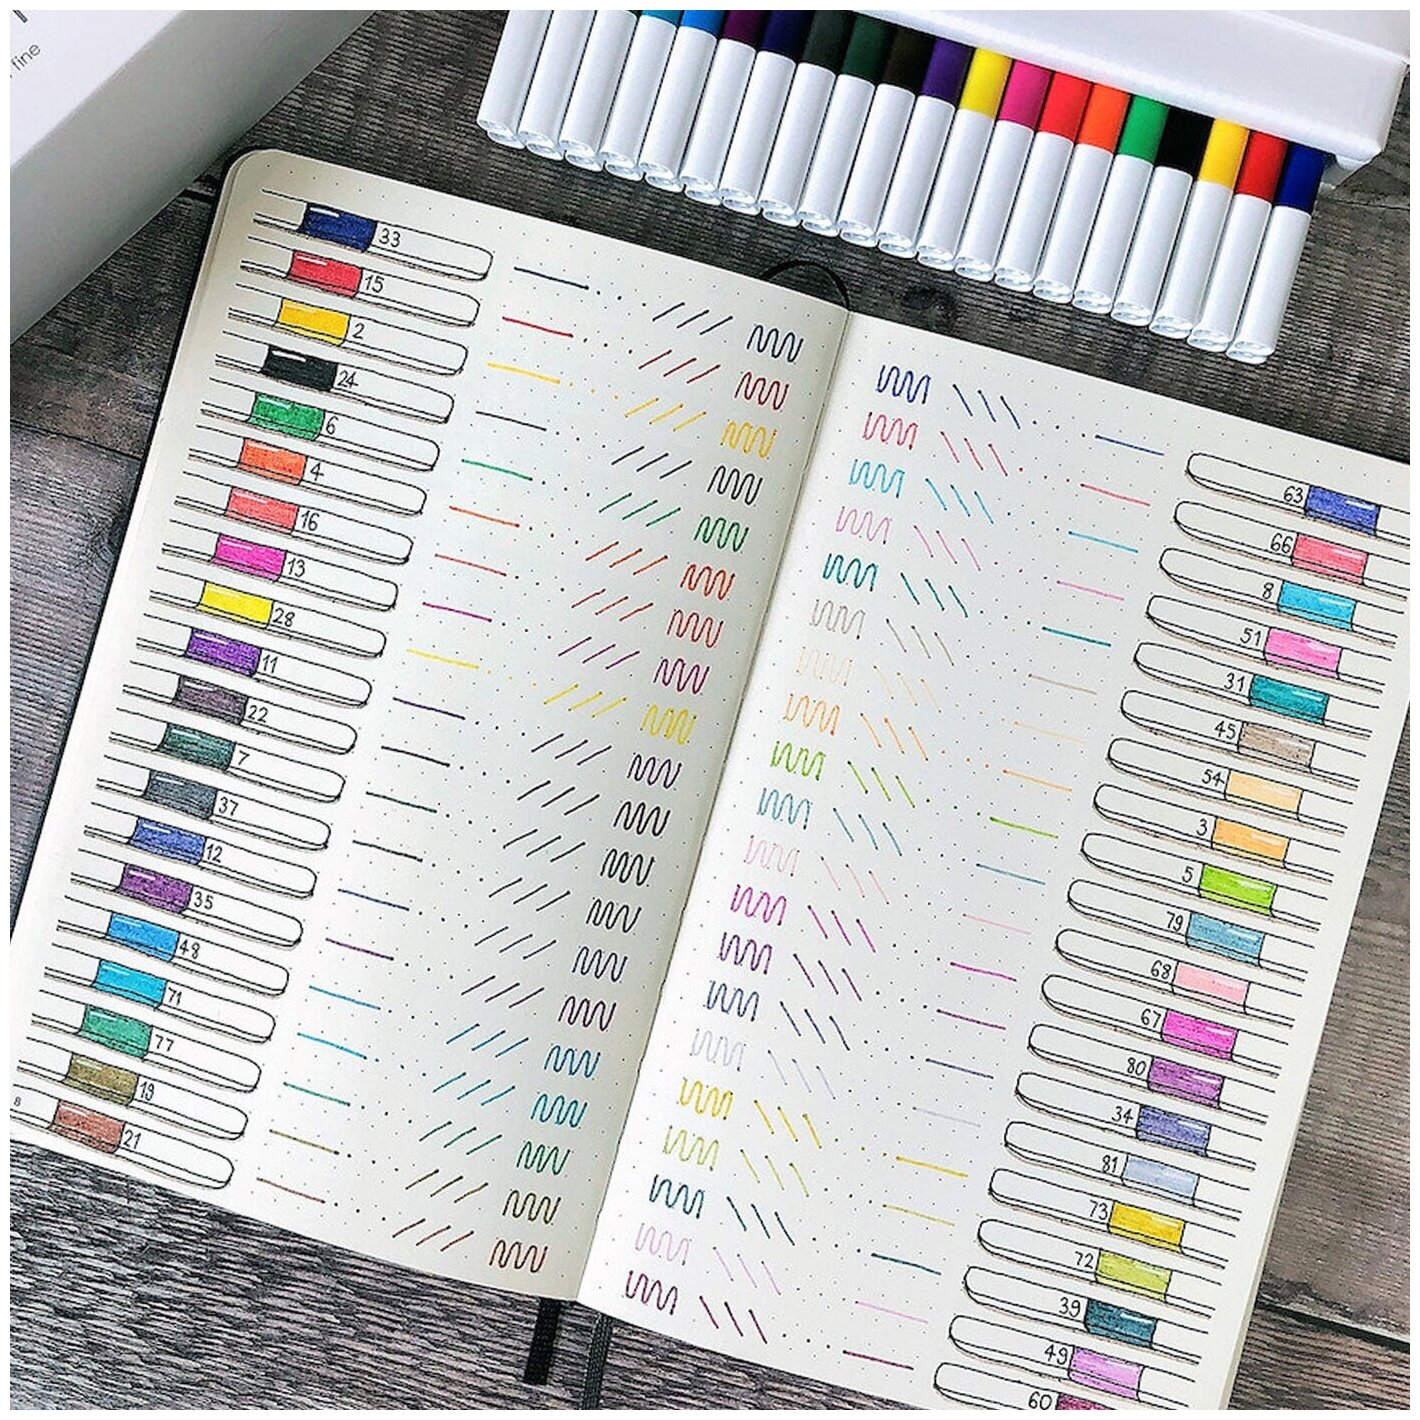 fine
33
15
2
24
6
4
16
13
28
11
22
7
37
12
35
48
71
77
19
21
8
63
66
8
51
31
45
54
3
5
79
68
67
80
34
81
73
72
39
49
60